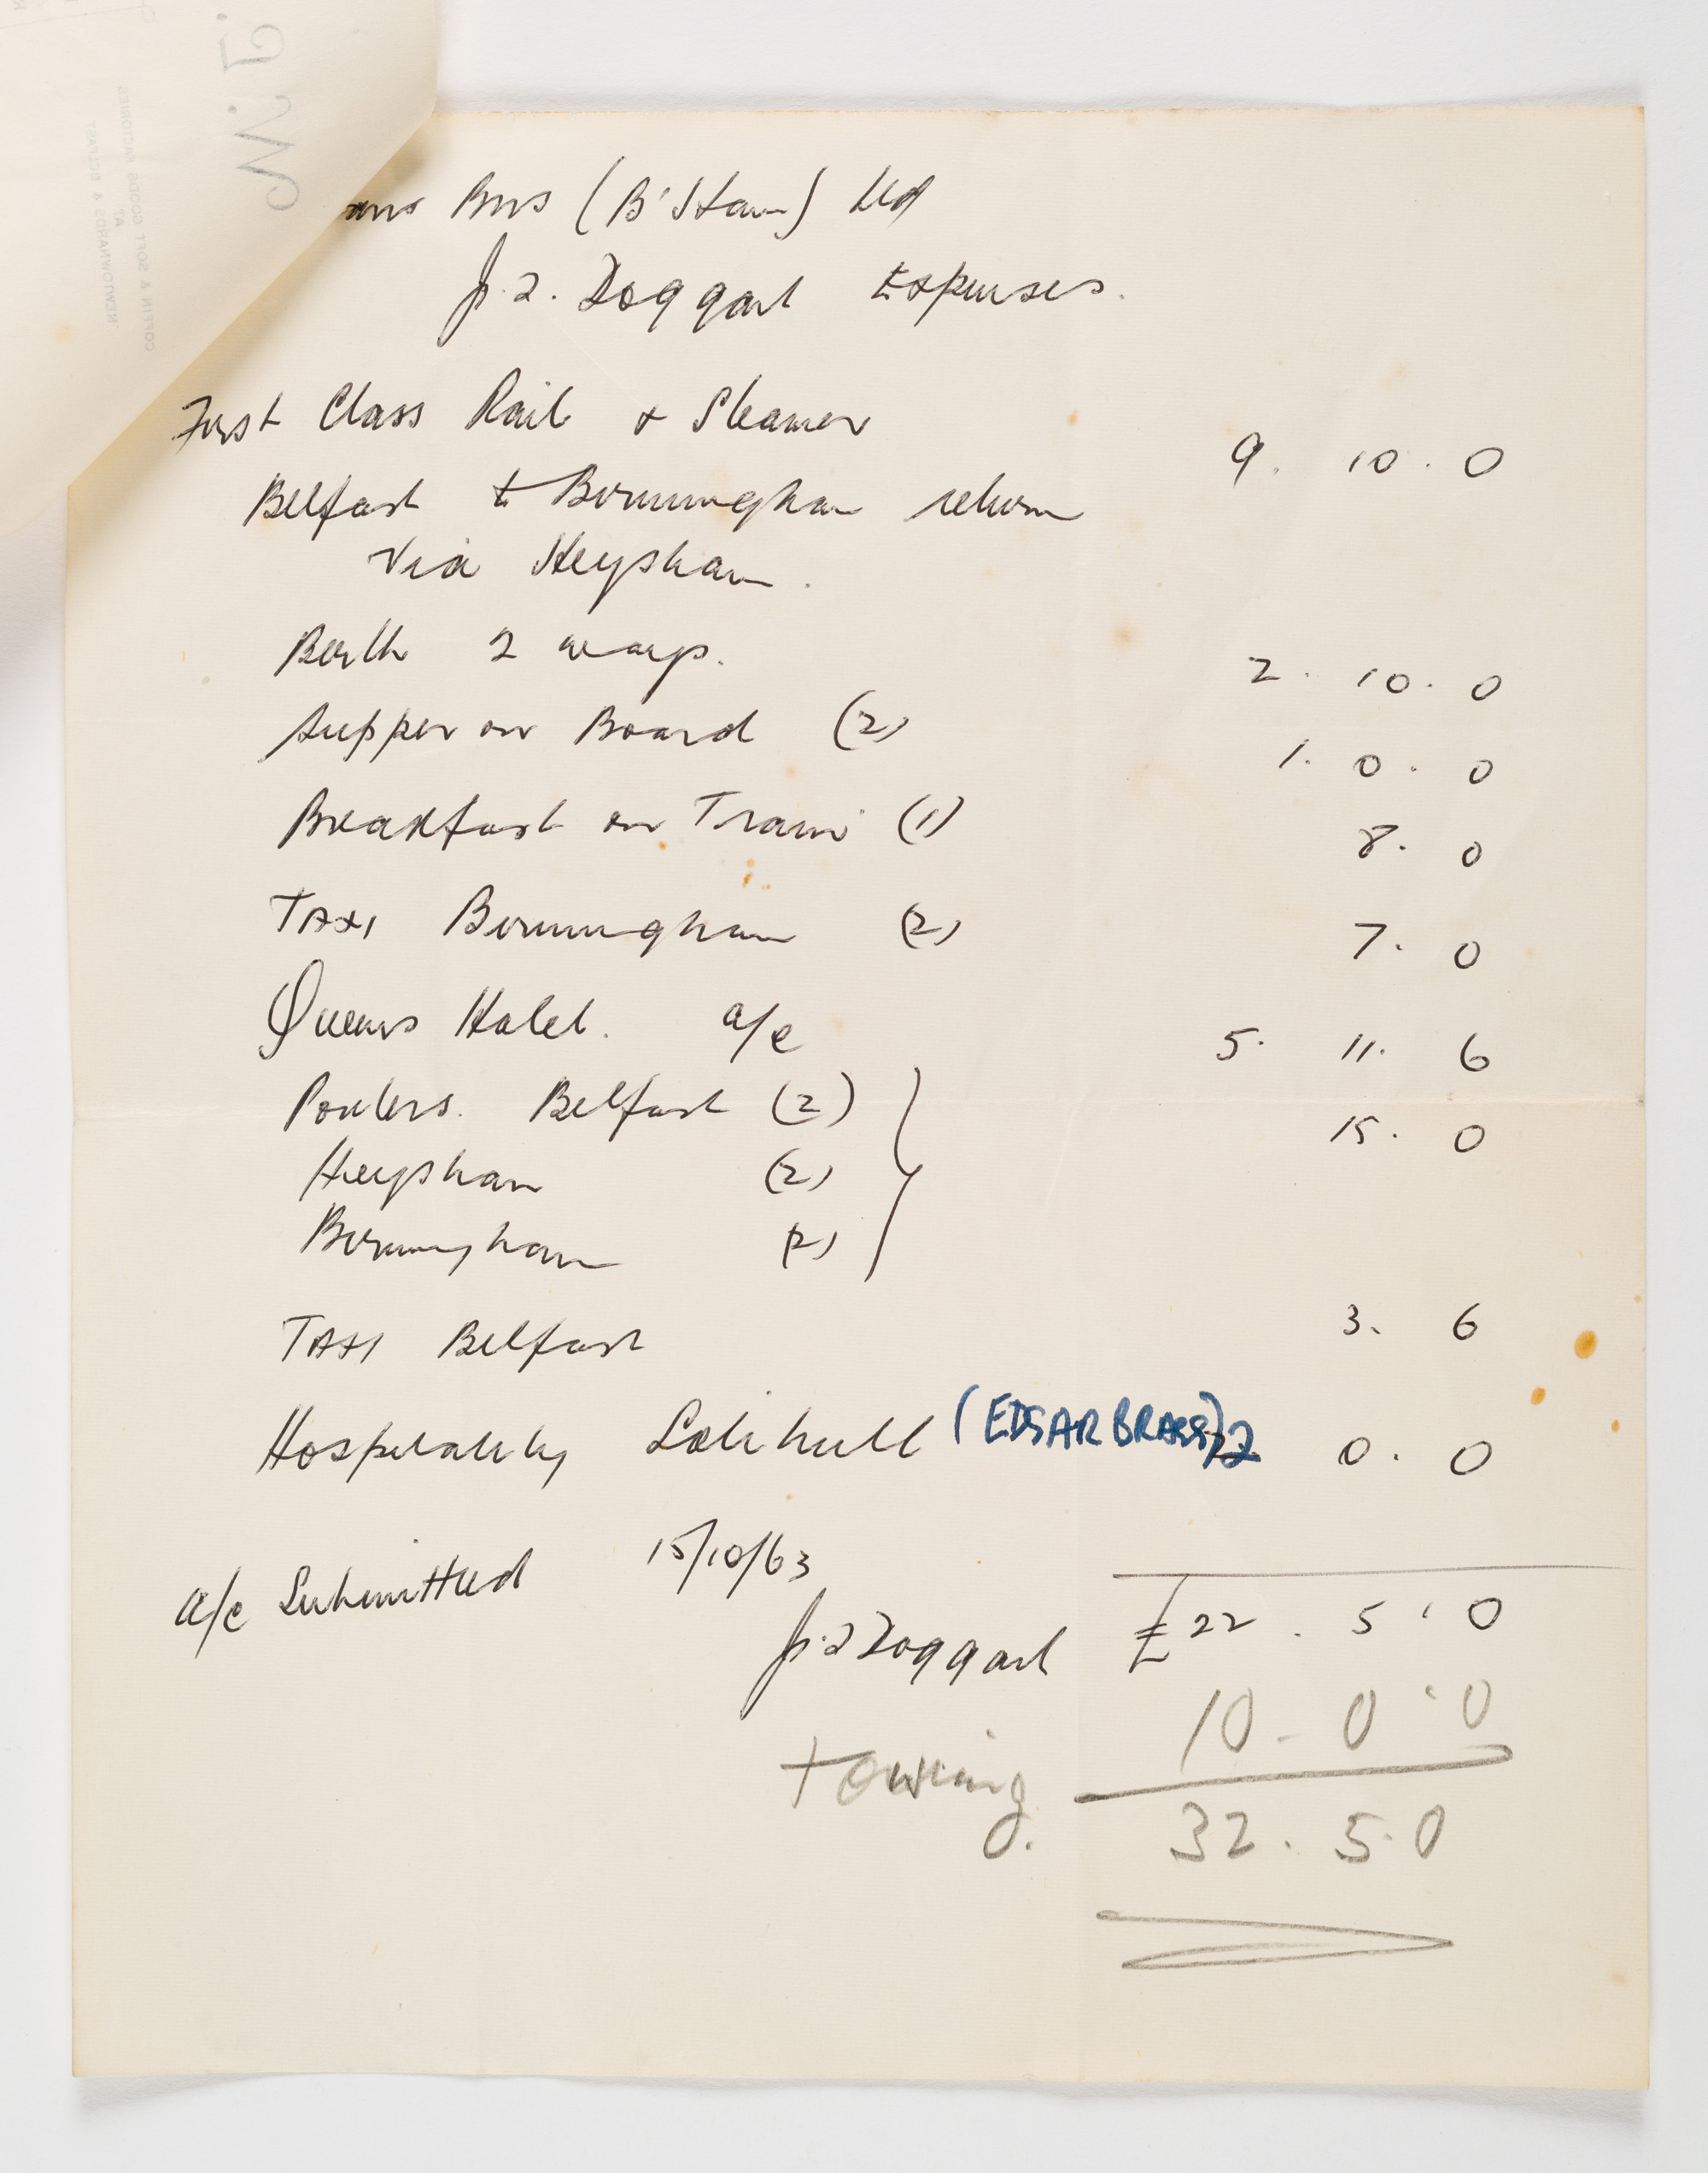 W.L.
COFFIN & SOFT GOODS FACTORIES
AT
NEWTOWNARDS & BELFAST
Bros (B'Ham) Ltd
J. 2. Doggart Expenses.
First Class Rail & Steamer 9. 10. 0
Belfast to Birmingham return
Via Heysham.
Berth 2 ways. 2. 10. 0
Supper on Board (2) 1. 0. 0
Breakfast on Train (1) 8. 0
TAXI Birmingham (2) 7. 0
Queens Hotel. a/c 5. 11. 6
Porters. Belfast (2) 15. 0
Heysham (2)
Birmingham (2)
TAXI Belfast 3. 6
Hospitality Solihull (EDGAR BRASS) 2 0. 0
a/c Submitted 15/10/63
J. 2 Doggart £22. 5. 0
10. 0. 0
+ owing. 32. 5. 0